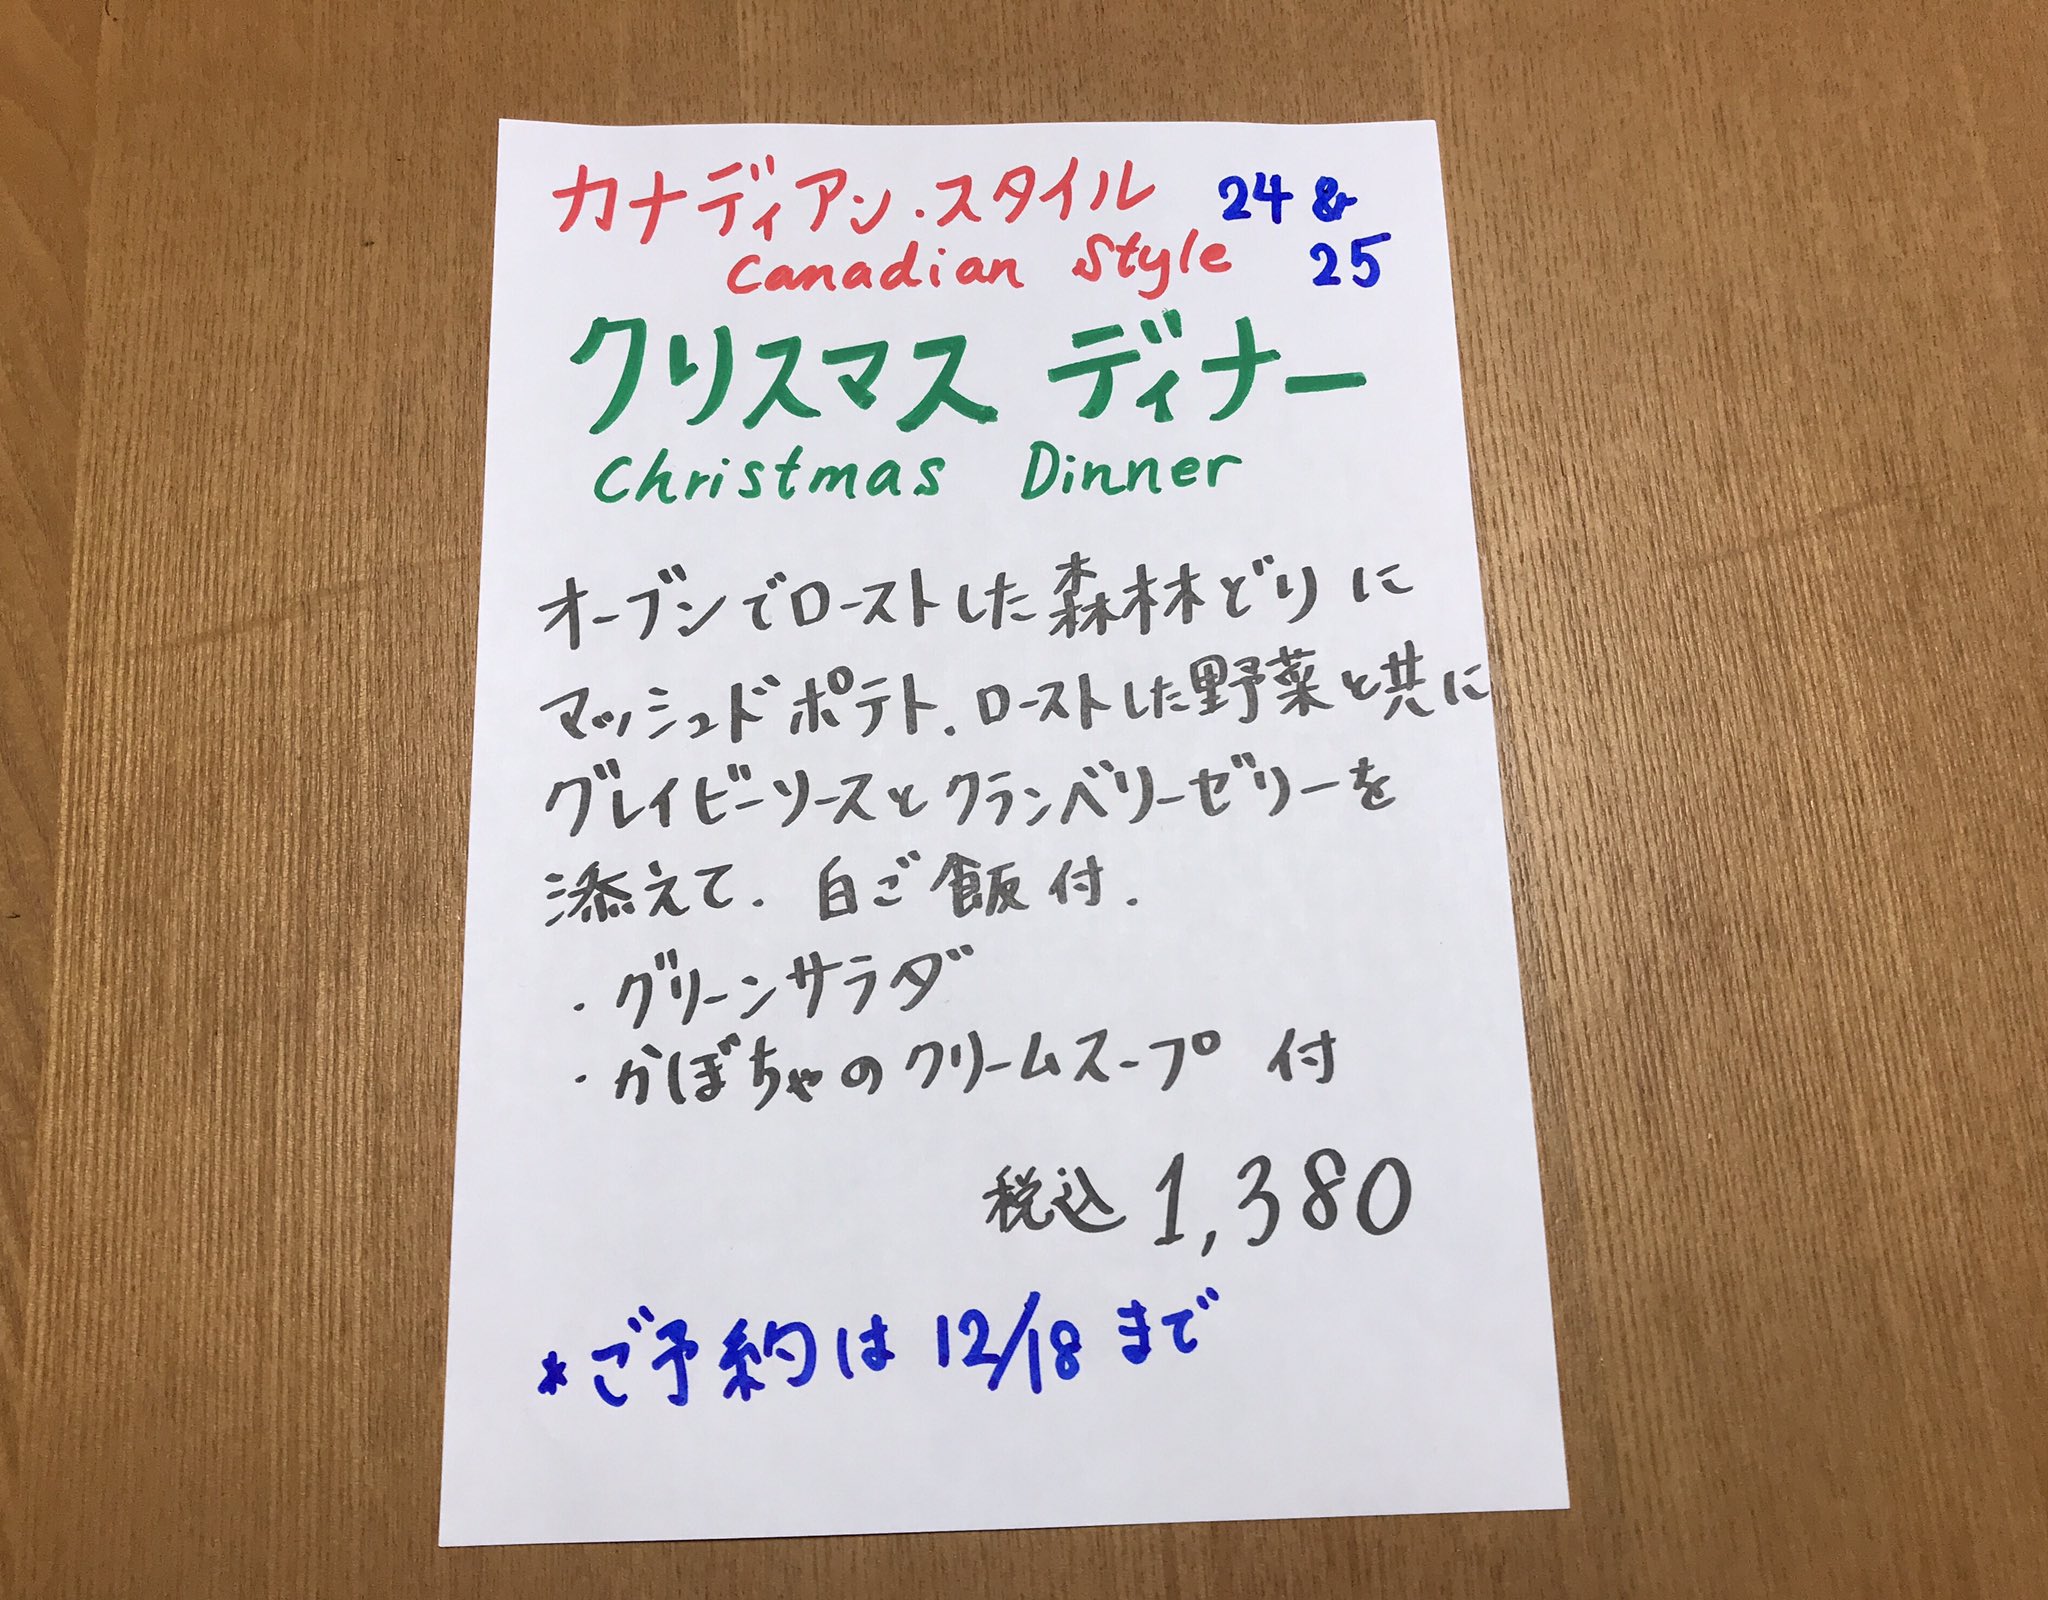 カナディアン・スタイル 24 &
Canadian Style 25
クリスマス ディナー
Christmas Dinner
オーブンでローストした森林どりに
マッシュドポテト、ローストした野菜と共に
グレイビーソースとクランベリーゼリーを
添えて. 白ご飯付.
・グリーンサラダ
・かぼちゃのクリームスープ 付
税込 1,380
*ご予約は 12/18 まで